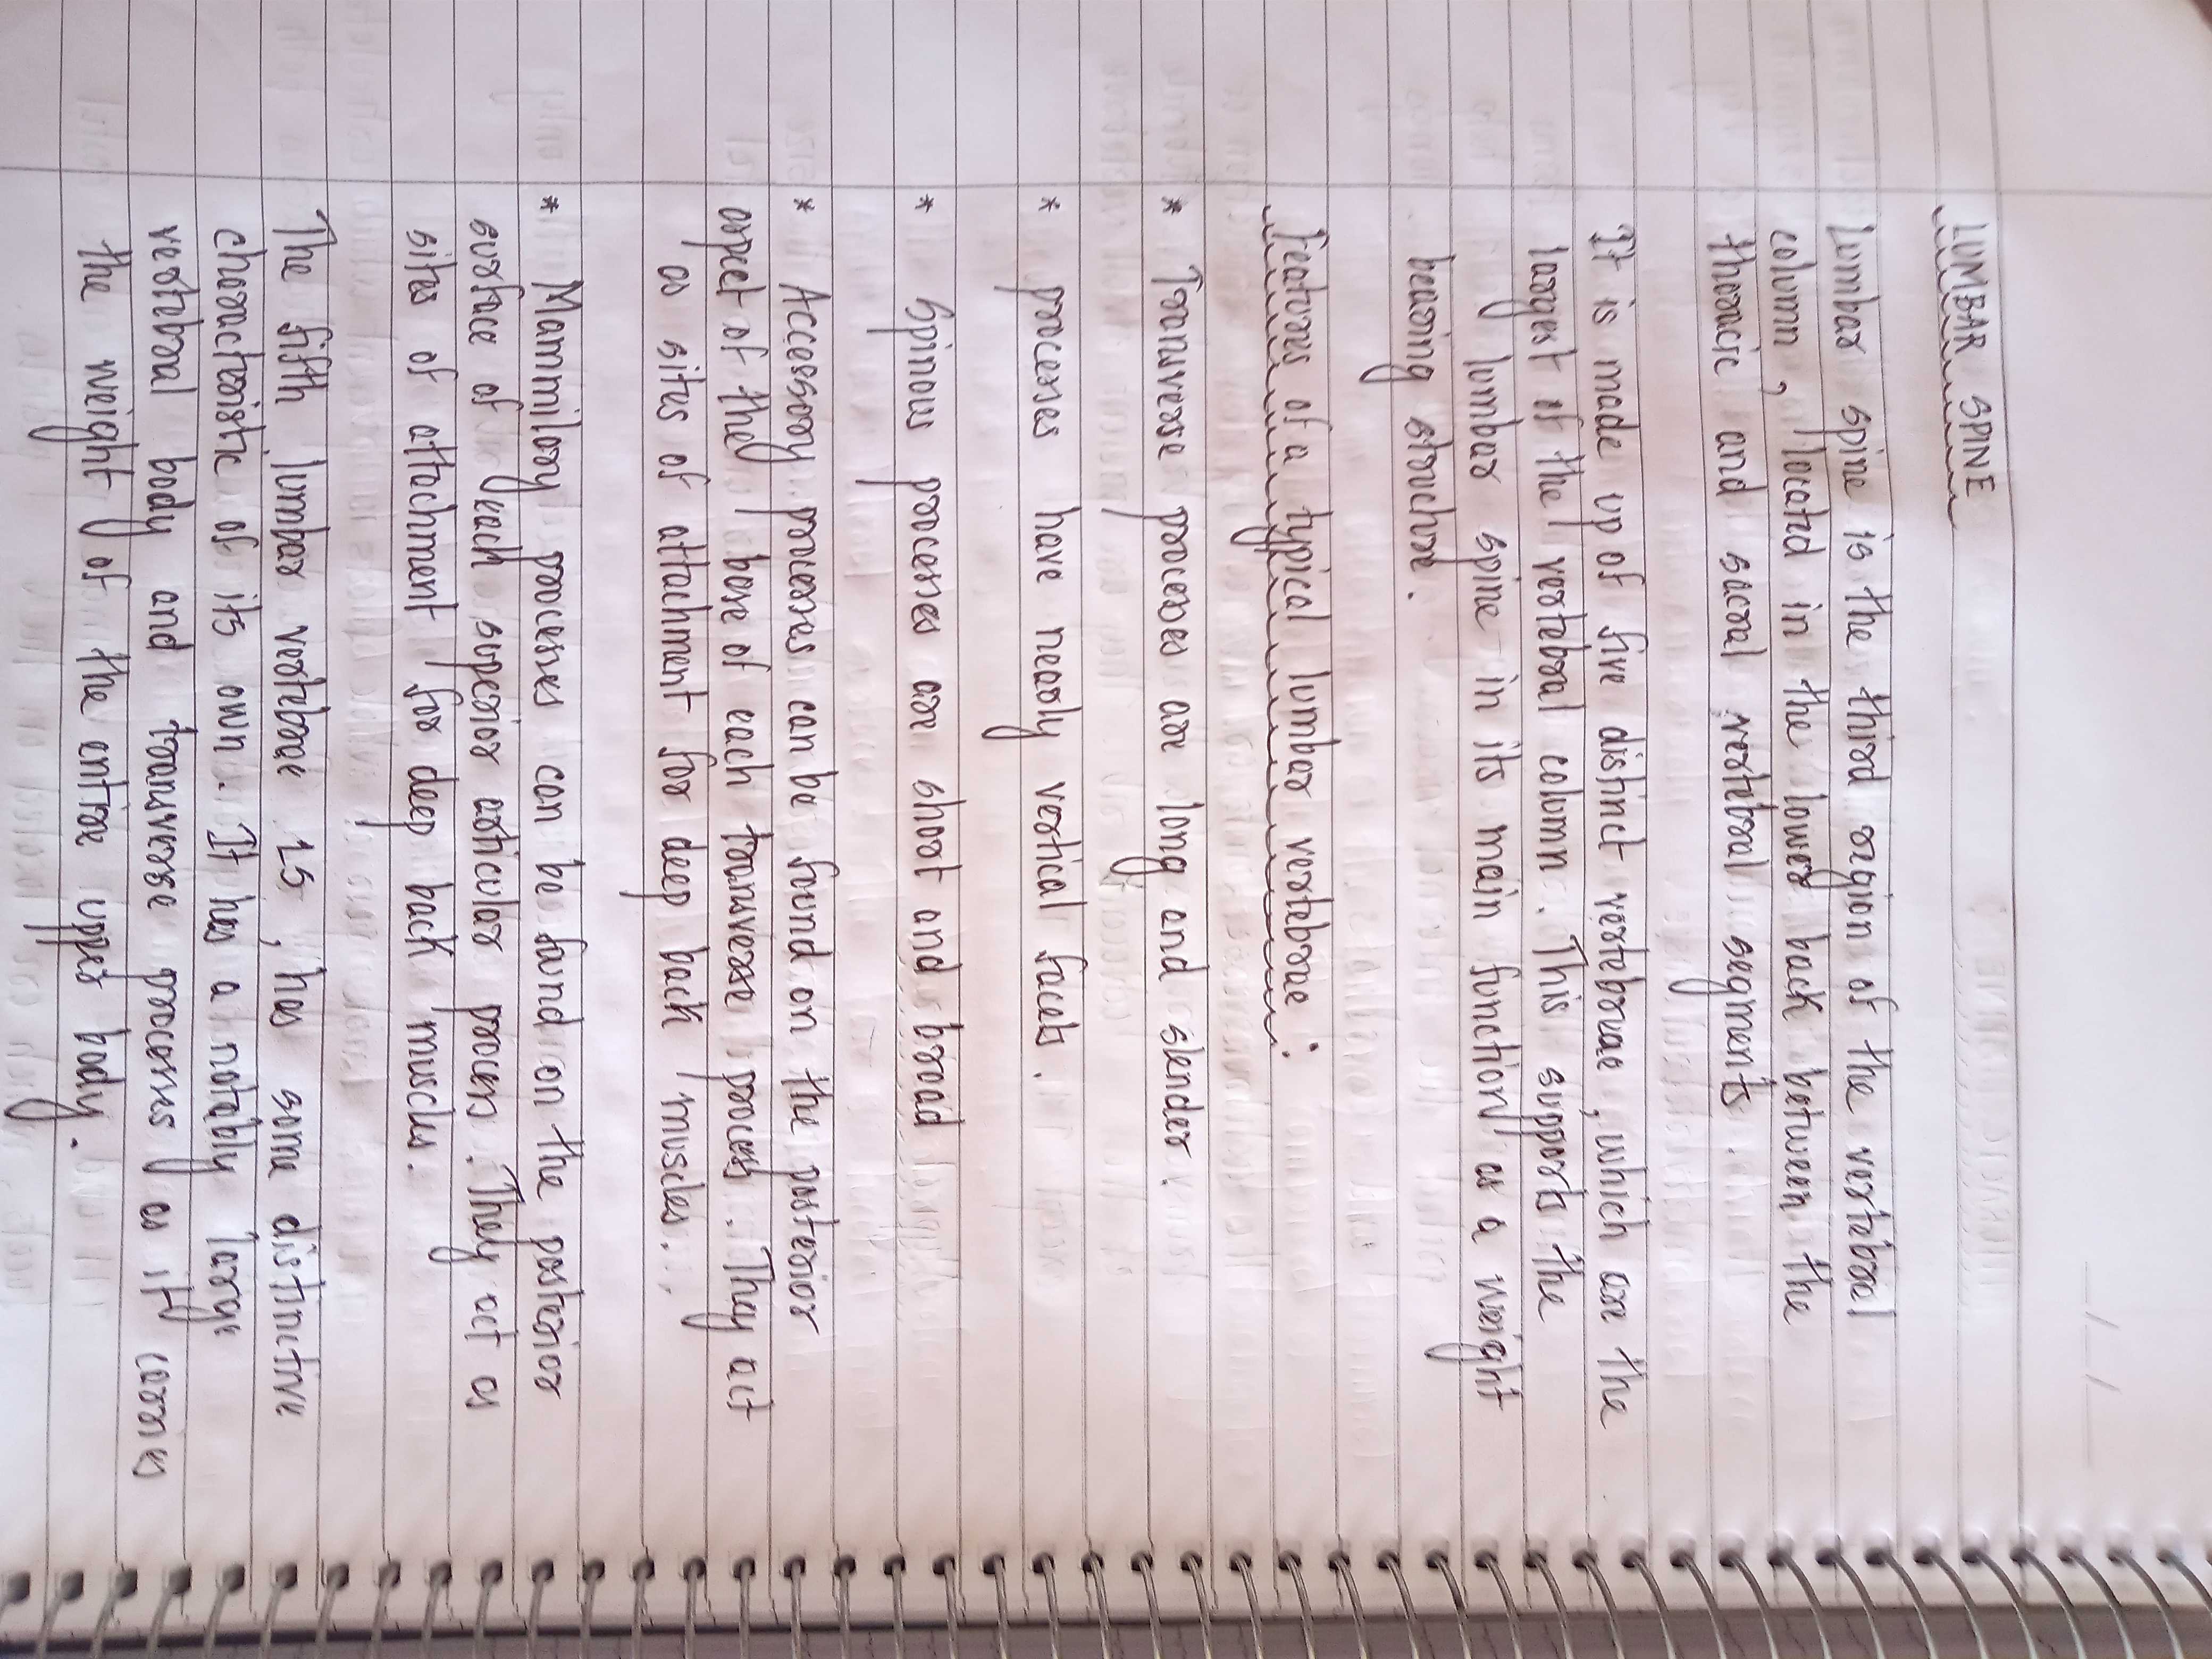 LUMBAR SPINE
Lumbar spine is the third region of the vertebral
column, located in the lower back between the
thoracic and sacral vertebral segments.
It is made up of five distinct vertebrae, which are the
largest of the vertebral column. This supports the
lumbar spine in its main function as a weight
bearing structure.
Features of a typical lumbar vertebrae :
* Transverse processes are long and slender.
* processes have nearly vertical facets.
* Spinous processes are short and broad
* Accessory processes can be found on the posterior
aspect of the base of each transverse process. They act
as sites of attachment for deep back muscles.
* Mammilory processes can be found on the posterior
surface of each superior articular process. They act as
sites of attachment for deep back muscles.
The fifth lumbar vertebrae L5, has some distinctive
characteristic of its own. It has a notably large
vertebral body and transverse processes as it carries
the weight of the entire upper body.